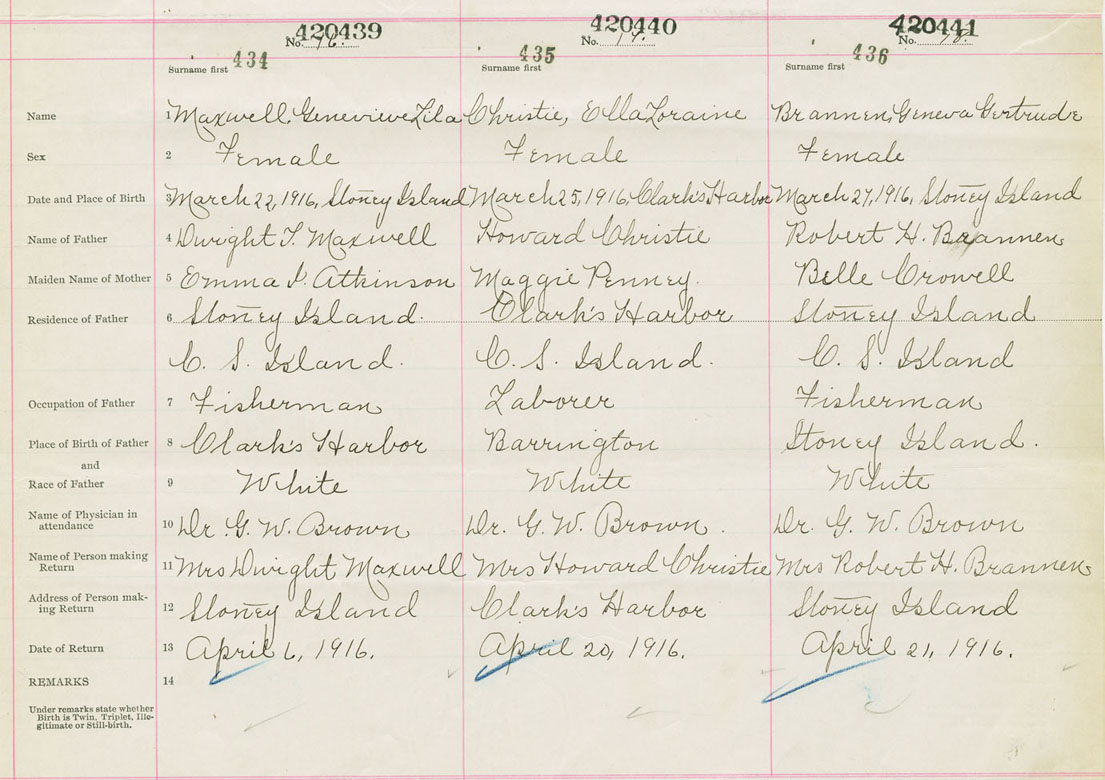 420439 420440 420441
No. 76. No. 77. No. 78.
434 435 436
Surname first Surname first Surname first
Name 1 Maxwell, Genevieve Lila Christie, Ella Loraine Brannen, Geneva Gertrude
Sex 2 Female Female Female
Date and Place of Birth 3 March 22, 1916, Stoney Island March 25, 1916, Clark's Harbor March 27, 1916, Stoney Island
Name of Father 4 Dwight T. Maxwell Howard Christie Robert H. Brannen
Maiden Name of Mother 5 Emma I. Atkinson Maggie Penney. Belle Crowell
Residence of Father 6 Stoney Island. Clark's Harbor Stoney Island
C. S. Island. C. S. Island. C. S. Island
Occupation of Father 7 Fisherman Laborer Fisherman
Place of Birth of Father 8 Clark's Harbor Barrington Stoney Island.
and
Race of Father 9 White White White
Name of Physician in
attendance 10 Dr. G. W. Brown Dr. G. W. Brown. Dr. G. W. Brown
Name of Person making
Return 11 Mrs Dwight Maxwell Mrs Howard Christie Mrs Robert H. Brannen
Address of Person mak-
ing Return 12 Stoney Island Clark's Harbor Stoney Island
Date of Return 13 April 6, 1916. April 20, 1916. April 21, 1916.
REMARKS 14
Under remarks state whether
Birth is Twin, Triplet, Ille-
gitimate or Still-birth.